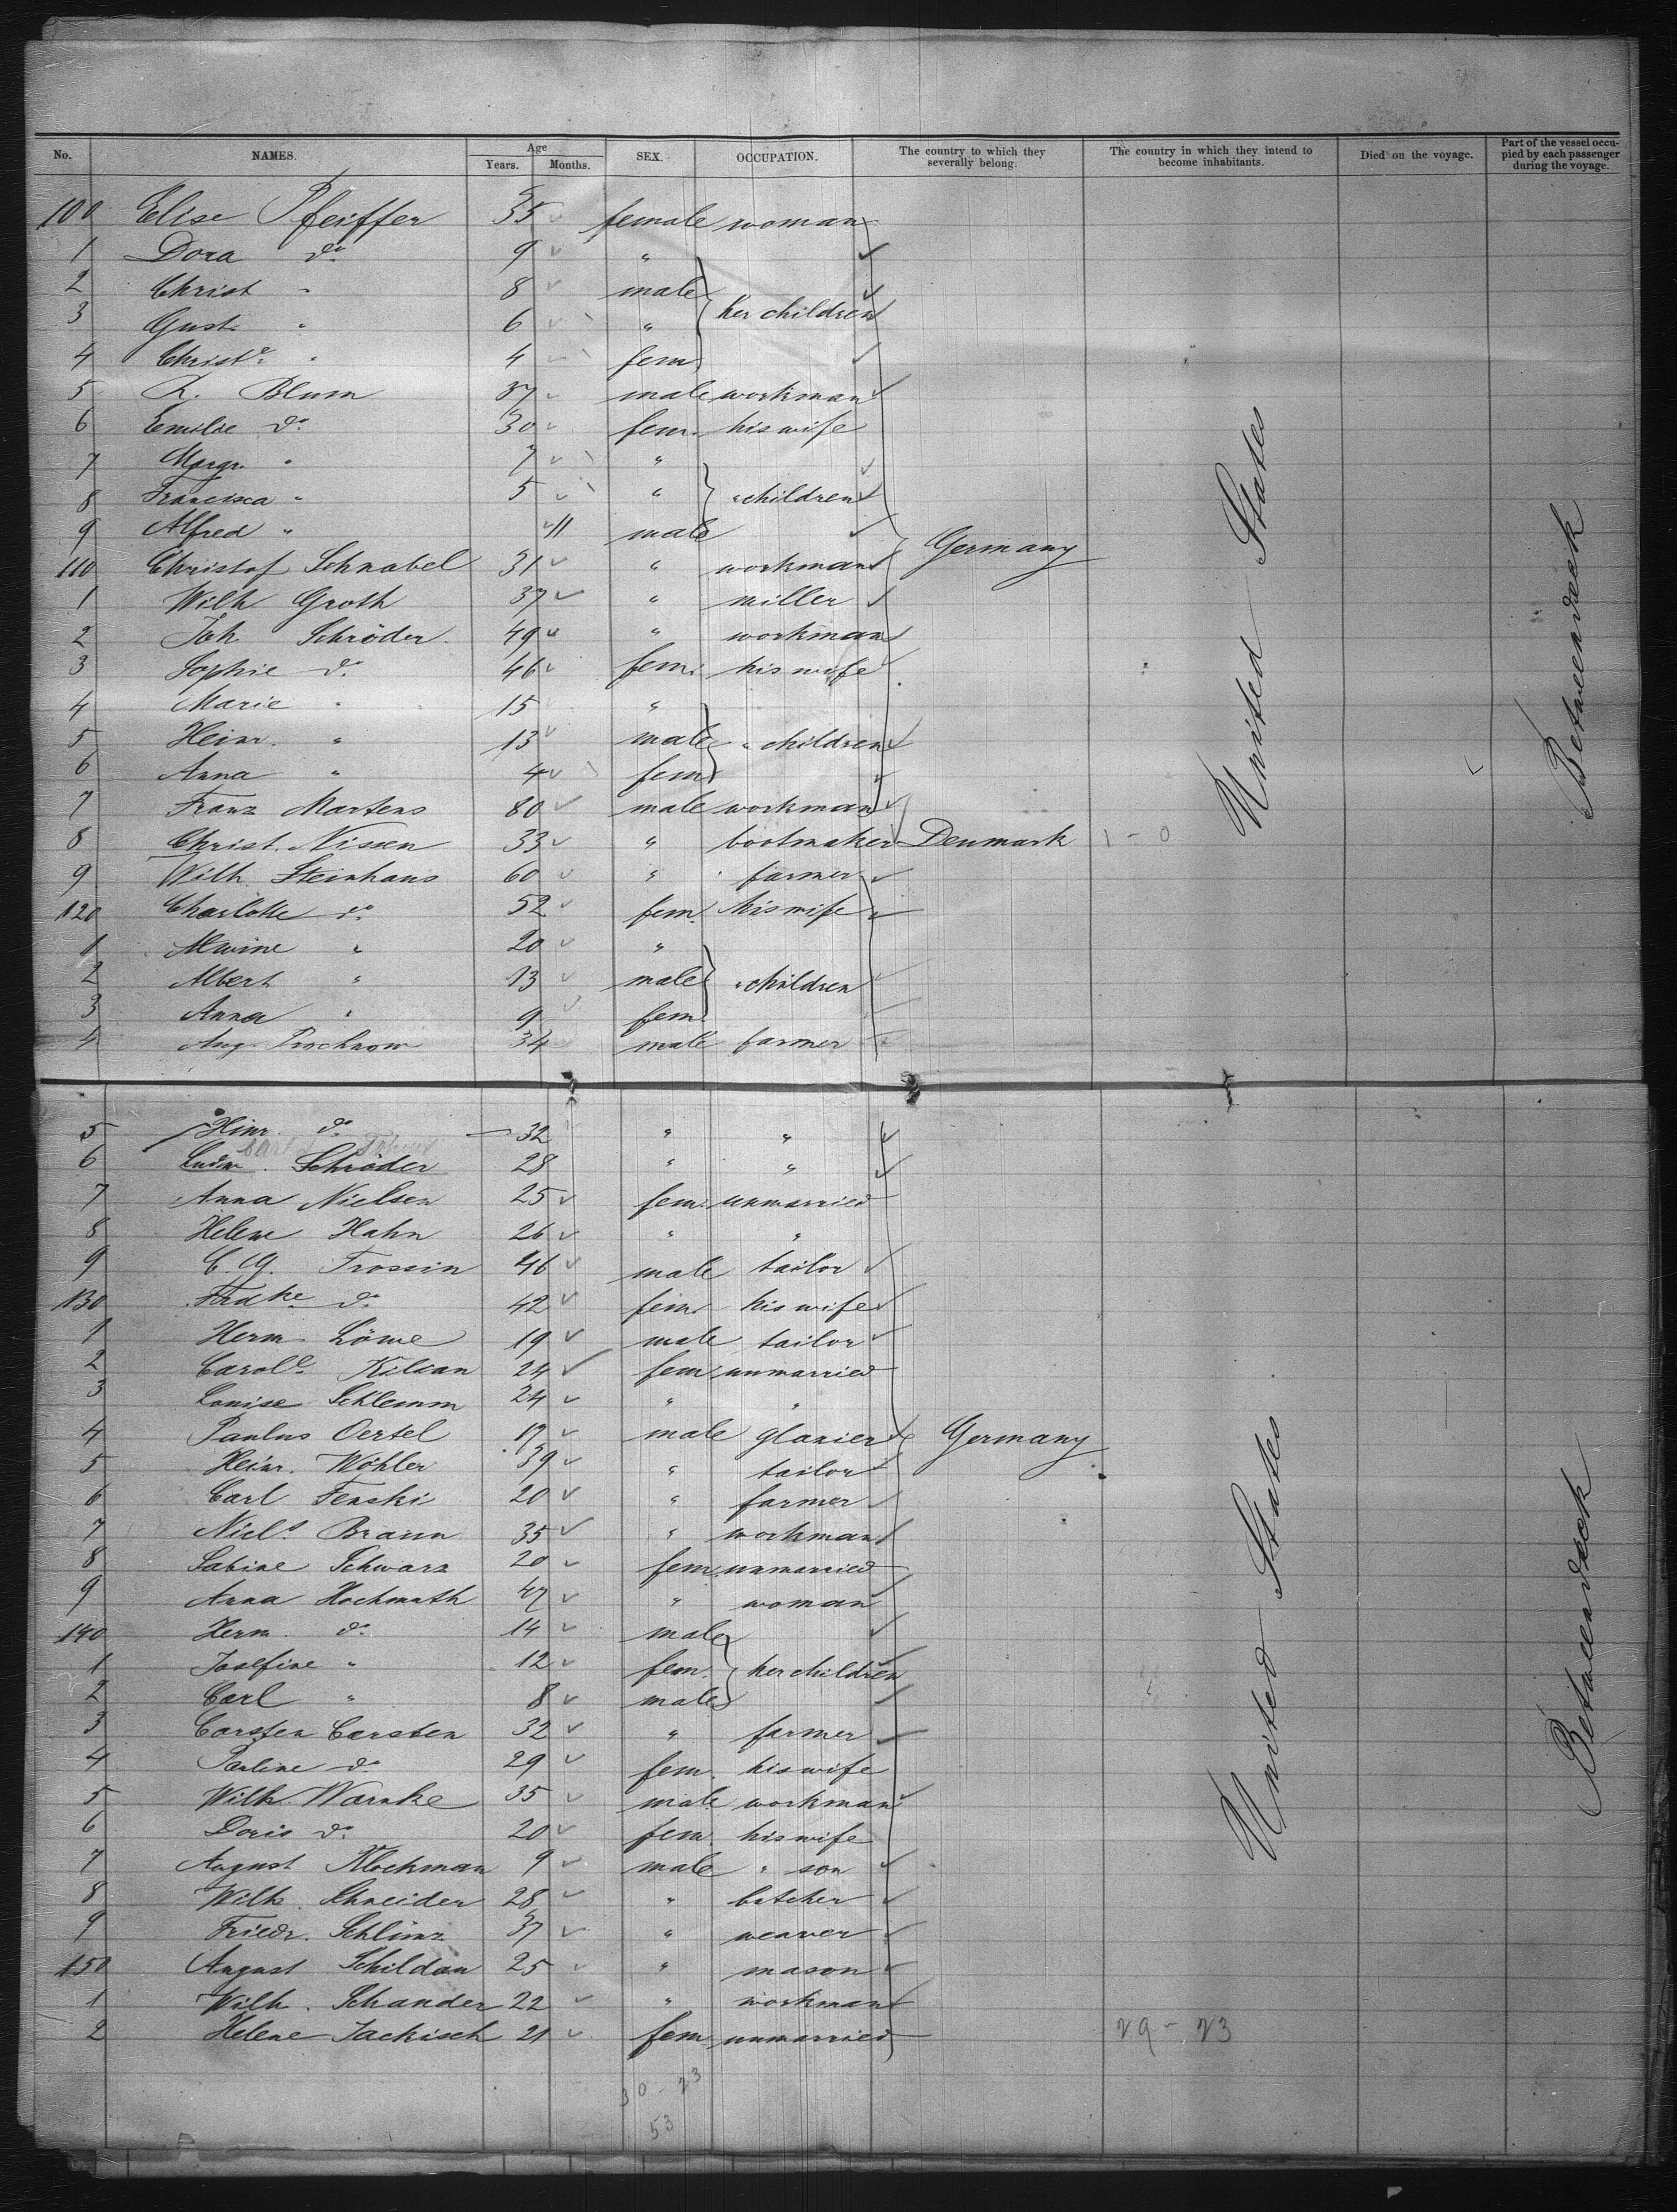 No. NAMES. Age Years. Months. SEX. OCCUPATION. The country to which they severally belong. The country in which they intend to become inhabitants. Died on the voyage. Part of the vessel occupied by each passenger during the voyage.
100 Elise Pfeiffer 35 female woman
1 Dora do 9 "
2 Christ " 8 male
3 Gust. " 6 " her children
4 Christe " 4 fem
5 R. Blum 37 male workman
6 Emilie do 30 fem. his wife
7 Margr. " 7 "
8 Francisca " 5 " " children
9 Alfred " 11 male
110 Christof Schnabel 31 " workman Germany
1 Wilh Groth 37 " miller
2 Joh Schröder 49 " workman
3 Sophie do 46 fem. his wife
4 Marie " 15 "
5 Heinr. " 13 male " children
6 Anna " 4 fem
7 Franz Martens 80 male workman
8 Christ. Nissen 33 " bootmaker Denmark 1 - 0
9 Wilh. Steinhaus 60 " farmer
120 Charlotte do 52 fem. his wife
1 Alwine " 20 "
2 Albert " 13 male " children
3 Anna " 9 fem.
4 Aug. Prochnow 34 male farmer
United States
Betweendeck
5 Hinr. do 32 " "
6 Ludw. Schröder 28 " "
7 Anna Nielsen 25 fem. unmarried
8 Helene Hahn 26 " "
9 C. G. Trossin 46 male tailor
130 Frdke do 42 fem. his wife
1 Herm. Löwe 19 male tailor
2 Carole Kilian 24 fem. unmarried
3 Louise Schlemm 24 " "
4 Paulus Oertel 17 male glazier Germany
5 Heinr. Wöhler 39 " tailor
6 Carl Fenski 20 " farmer
7 Nicls Braun 35 " workman
8 Sabine Schwarz 20 fem. unmarried
9 Anna Hochmuth 47 " woman
140 Herm. do 14 male
1 Josefine " 12 fem. her children
2 Carl " 8 male
3 Carsten Carsten 32 " farmer
4 Pauline do 29 fem. his wife
5 Wilh. Warnke 35 male workman
6 Doris do 20 fem. his wife
7 August Klockman 9 male " son
8 Wilh. Schneider 28 " butcher
9 Friedr. Schlünz 37 " weaver
150 August Schildau 25 " mason
1 Wilh. Schander 22 " workman
2 Helene Jackisch 21 fem. unmarried
United States
Betweendeck
29 - 23
30 - 23
53